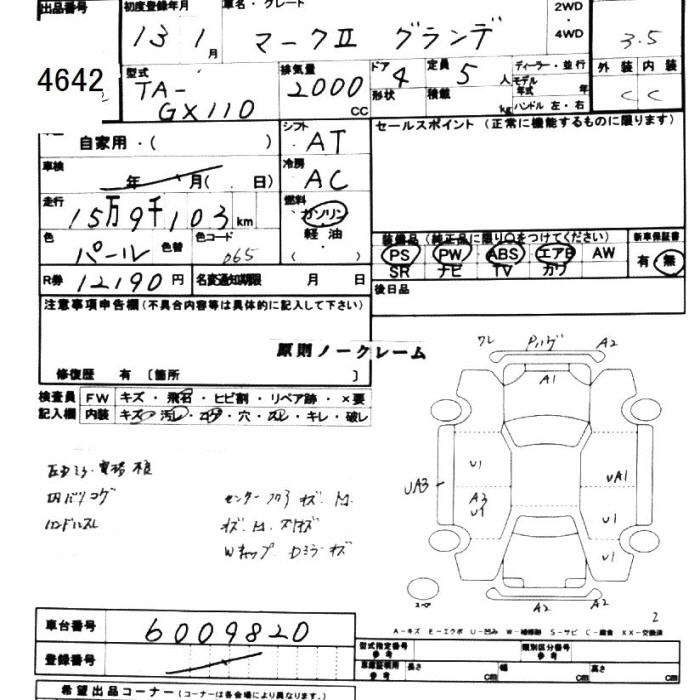 出品番号 初度登録年月 車名・グレード 2WD・4WD
13 1月 マークII グランデ 3.5
4642
型式 TA-GX110
排気量 2000 cc
ドア 4 形状
定員 5 人 積載 kg
ディーラー・並行 モデル年式 年 ハンドル 左・右
外装 内装
C C
自家用・( )
シフト AT
セールスポイント (正常に機能するものに限ります)
車検 年 月( 日)
冷房 AC
走行 15万9千103 km
燃料 ガソリン 軽油 ( )
色 パール 色替 色コード 065
装備品 (純正品に限り○をつけてください) 新車保証書
PS PW ABS エアB AW 有 無
SR ナビ TV カワ
R券 12190円 名変通知期限 月 日
後日品
注意事項申告欄 (不具合内容等は具体的に記入して下さい)
原則ノークレーム
修復歴 有 〔箇所 〕
検査員 FW キズ・飛石・ヒビ割・リペア跡・×要
記入欄 内装 キズ・汚れ・コゲ・穴・スレ・キレ・破レ
ワレ A2
A1
U1 UA1
UA3 A3 U1 U1
U1
A2 A2
内バリコゲ
ハンドルスレ
2
A-キズ E-エクボ U-凹み W-補修跡 S-サビ C-腐食 XX-交換済
車台番号 6009820
登録番号
型式指定番号 参考 類別区分番号 参考
車庫証明用 参考 長さ cm 幅 cm 高さ cm
希望出品コーナー (コーナーは各会場により異なります。)